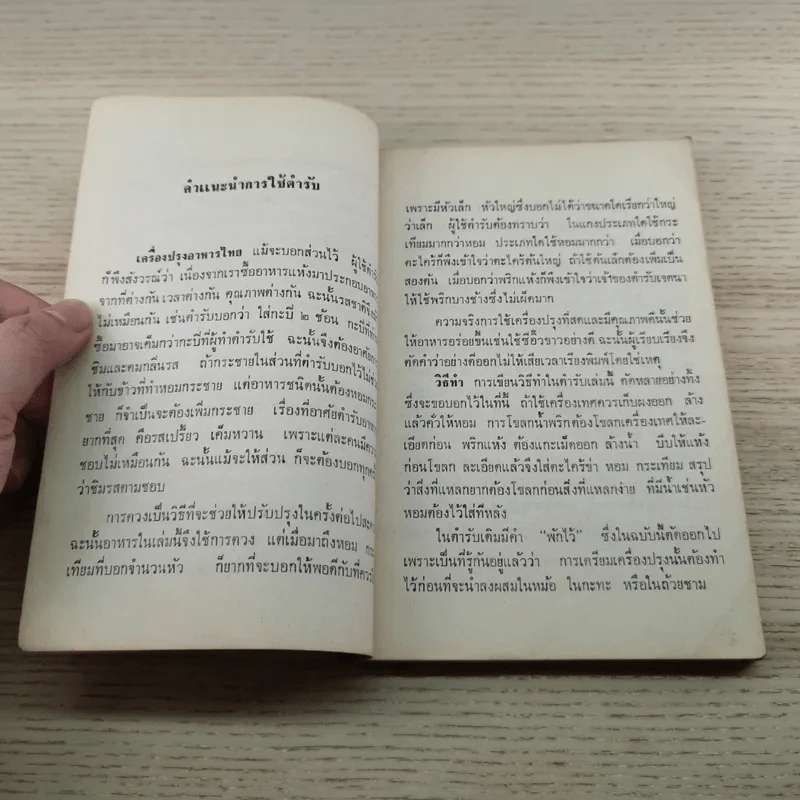 คำแนะนำการใช้ตำรับ
เครื่องปรุงอาหารไทย แม้จะบอกส่วนไว้ ผู้ใช้
ก็พึงสังวรณ์ว่า เนื่องจากเราซื้ออาหารแห้งมาประกอบ
จากที่ต่างกัน เวลาต่างกัน คุณภาพต่างกัน ฉะนั้นรสชาติ
ไม่เหมือนกัน เช่นตำรับบอกว่า ใส่กะปิ ๒ ช้อน กะปิที่
ซื้อมาอาจเค็มกว่ากะปิที่ผู้ทำตำรับใช้ ฉะนั้นจึงต้อง
ชิมและดมกลิ่นรส ถ้ากระชายในส่วนที่ตำรับบอกไว้
ให้กับข้าวที่ทำหอมกระชาย แต่อาหารชนิดนั้นต้องหอม
ชาย ก็จำเป็นจะต้องเพิ่มกระชาย เรื่องที่อาศัยตำรับ
ยากที่สุด คือรสเปรี้ยว เค็มหวาน เพราะแต่ละคนมี
ชอบไม่เหมือนกัน ฉะนั้นแม้จะให้ส่วน ก็จะต้องบอก
ว่าชิมรสตามชอบ
การตวงเป็นวิธีที่จะช่วยให้ปรับปรุงในครั้งต่อไป
ฉะนั้นอาหารในเล่มนี้จึงใช้การตวง แต่เมื่อมาถึงหอม
เทียมที่บอกจำนวนหัว ก็ยากที่จะบอกให้พอดีกับที่
เพราะมีหัวเล็ก หัวใหญ่ซึ่งบอกไม่ได้ว่าขนาดใดเรียกว่าใหญ่
ว่าเล็ก ผู้ใช้ตำรับต้องทราบว่า ในแกงประเภทใดใช้กระ
เทียมมากกว่าหอม ประเภทใดใช้หอมมากกว่า เมื่อบอกว่า
ตะไคร้ก็พึงเข้าใจว่าตะไคร้ต้นใหญ่ ถ้าใช้ต้นเล็กต้องเพิ่มเป็น
สองต้น เมื่อบอกว่าพริกแห้งก็พึงเข้าใจว่าเจ้าของตำรับเจตนา
ให้ใช้พริกบางช้างซึ่งไม่เผ็ดมาก
ความจริงการใช้เครื่องปรุงที่สดและมีคุณภาพดีนั้นช่วย
ให้อาหารอร่อยขึ้นเช่นใช้ซีอิ๊วขาวอย่างดี ฉะนั้นผู้เรียบเรียงจึง
ตัดคำว่าอย่างดีออกไม่ให้เสียเวลาเรียงพิมพ์โดยใช่เหตุ
วิธีทำ การเขียนวิธีทำในตำรับเล่มนี้ ตัดหลายอย่างทิ้ง
ซึ่งจะขอบอกไว้ในที่นี้ ถ้าใช้เครื่องเทศควรเก็บผงออก ล้าง
แล้วคั่วให้หอม การโขลกน้ำพริกต้องโขลกเครื่องเทศให้ละ-
เอียดก่อน พริกแห้ง ต้องแกะเม็ดออก ล้างน้ำ บีบให้แห้ง
ก่อนโขลก ละเอียดแล้วจึงใส่ตะไคร้ข่า หอม กระเทียม สรุป
ว่าสิ่งที่แหลกยากต้องโขลกก่อนสิ่งที่แหลกง่าย ที่มีน้ำเช่นหัว
หอมต้องไว้ใส่ทีหลัง
ในตำรับเดิมมีคำ “พักไว้” ซึ่งในฉบับนี้ตัดออกไป
เพราะเป็นที่รู้กันอยู่แล้วว่า การเตรียมเครื่องปรุงนั้นต้องทำ
ไว้ก่อนที่จะนำลงผสมในหม้อ ในกะทะ หรือในถ้วยชาม